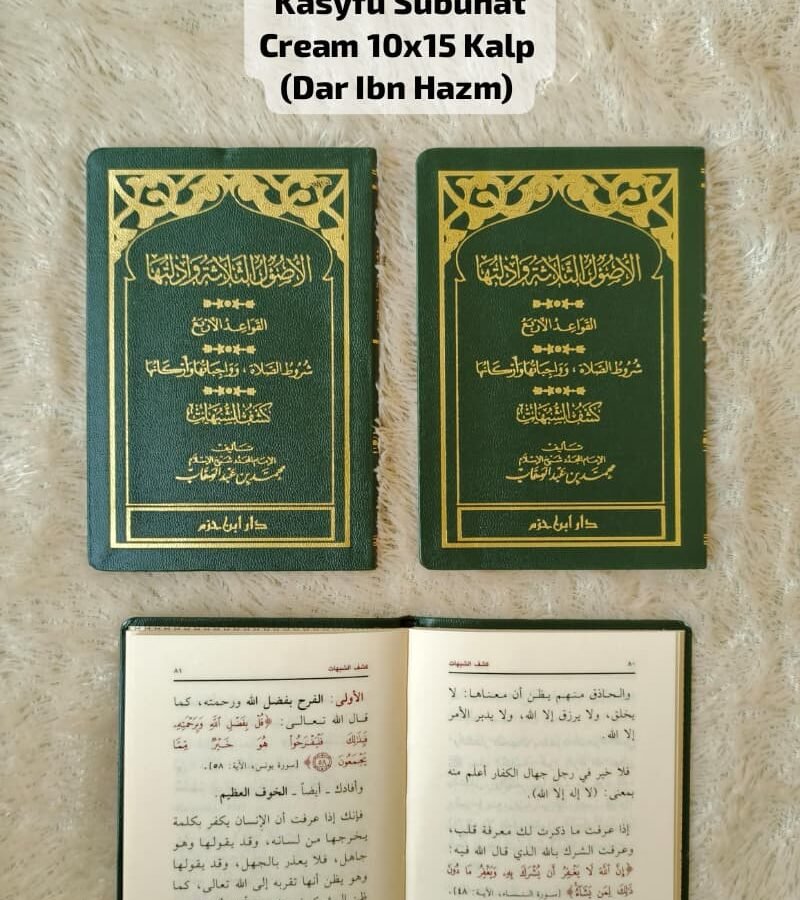 Kasyfu Subuhat
Cream 10x15 Kalp
(Dar Ibn Hazm)
الأصول الثلاثة وأدلتها
القواعد الأربع
شروط الصلاة، وواجباتها وأركانها
كشف الشبهات
تأليف
الإمام المجدد شيخ الإسلام
محمد بن عبد الوهاب
دار ابن حزم
الأصول الثلاثة وأدلتها
القواعد الأربع
شروط الصلاة، وواجباتها وأركانها
كشف الشبهات
تأليف
الإمام المجدد شيخ الإسلام
محمد بن عبد الوهاب
دار ابن حزم
٨٠ كشف الشبهات
والحاذق منهم يظن أن معناها: لا
يخلق، ولا يرزق إلا الله، ولا يدبر الأمر
إلا الله.
فلا خير في رجل جهال الكفار أعلم منه
بمعنى: (لا إله إلا الله).
إذا عرفت ما ذكرت لك معرفة قلب،
وعرفت الشرك بالله الذي قال الله فيه:
﴿إِنَّ ٱللَّهَ لَا يَغْفِرُ أَن يُشْرَكَ بِهِۦ وَيَغْفِرُ مَا دُونَ
ذَٰلِكَ لِمَن يَشَآءُ﴾ [سورة النساء، الآية: ٤٨].
كشف الشبهات ٨١
الأولى: الفرح بفضل الله ورحمته، كما
قال الله تعالى: ﴿قُلْ بِفَضْلِ ٱللَّهِ وَبِرَحْمَتِهِۦ
فَبِذَٰلِكَ فَلْيَفْرَحُوا۟ هُوَ خَيْرٌ مِّمَّا
يَجْمَعُونَ ٥٨﴾ [سورة يونس، الآية: ٥٨].
وأفادك ـ أيضاً ـ الخوف العظيم.
فإنك إذا عرفت أن الإنسان يكفر بكلمة
يخرجها من لسانه، وقد يقولها وهو
جاهل، فلا يعذر بالجهل، وقد يقولها
وهو يظن أنها تقربه إلى الله تعالى، كما